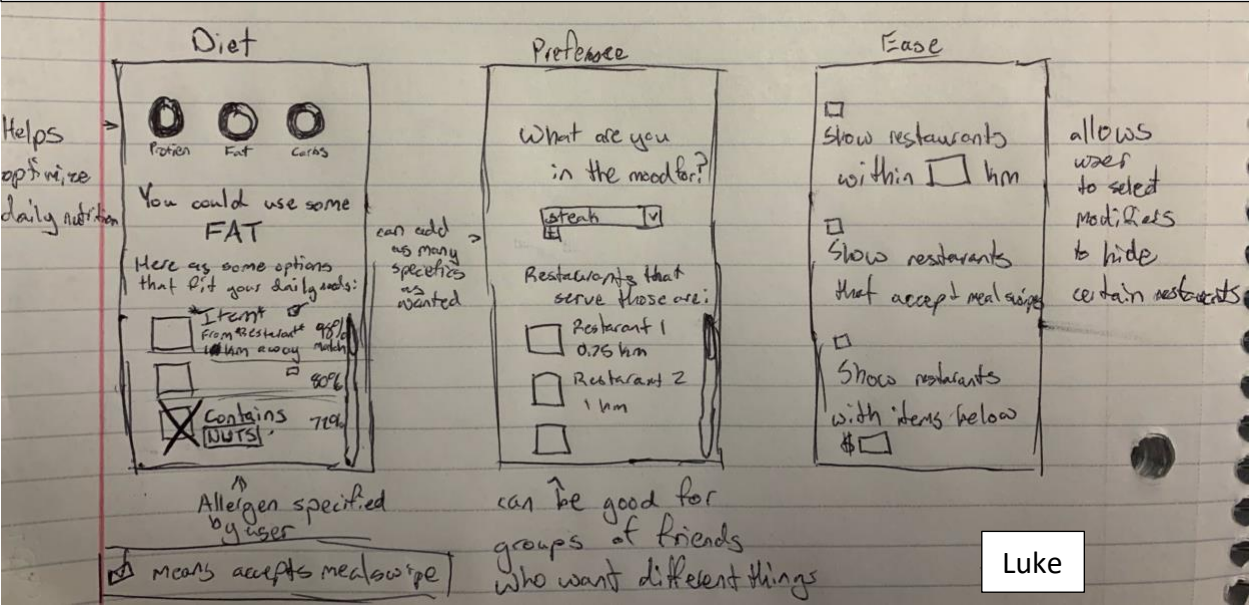 Diet
Helps
optimize
daily nutrition
Protien Fat Carbs
You could use some
FAT
Here as some options
that fit your daily needs:
*Item*
From *Resterant* 98%
1 km away match
80%
Contains 71%
NUTS
Allergen specified
by user
means accepts mealswipe
Prefernce
can add
as many
specifics
as
wanted
What are you
in the mood for?
steak
+
Restaurants that
serve those are:
Restarant 1
0.75 km
Restarant 2
1 km
can be good for
groups of friends
who want different things
Ease
Show restaurants
within km
Show restaurants
that accept meal swipes
Show restarants
with items below
$
allows
user
to select
modifiers
to hide
certain restaurants
Luke